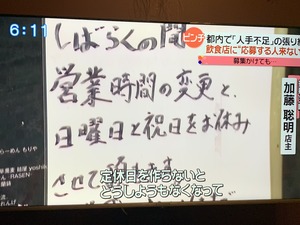 6:11
ピンチ 都内で「人手不足」の張り紙
飲食店に"応募する人来ない
募集かけても…
加藤 聡明 店主
しばらくの間
営業時間の変更と、
日曜日と祝日をお休み
させて
定休日を作らないと
どうしようもなくなって